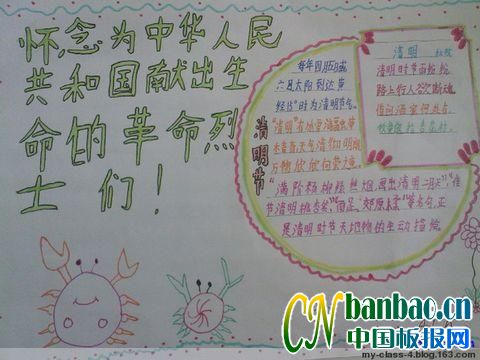 怀念为中华人民
共和国献出生
命的革命烈
士们！
清明节
每年四月五日或
六日太阳到达黄
经15°时为清明节气。
"清明"有
木
万物欣欣向荣
"满阶杨柳绿丝烟，画出清明二月天"，"佳
节清明桃李笑"，"雨足郊原
是清明时节天地物候的生动描绘
清明 杜牧
清明时节雨纷纷
路上行人欲断魂
借问酒家何处有
牧童遥指杏花村
CNbanbao.cn
中国板报网
my-class-4.blog.163.com